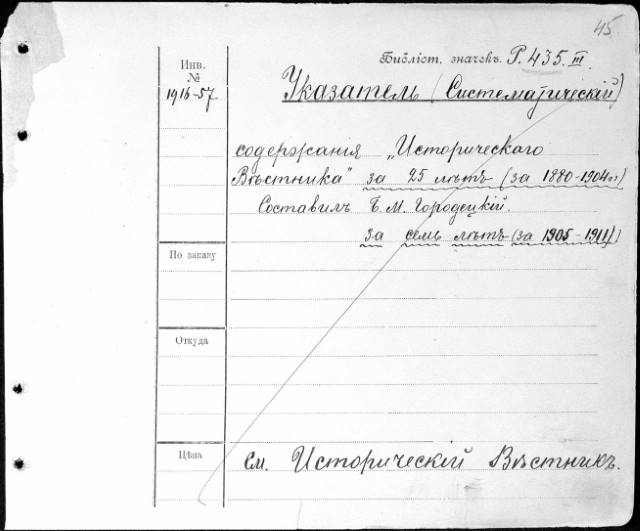 45
Библіот. значекъ. Р. 435. III.
Инв.
№
1916-57
Указатель (Систематическій)
содержанія „Историческаго
Вѣстника" за 25 лѣтъ (за 1880-1904 г)
Составилъ Б. М. Городецкій.
за семь лѣтъ (за 1905-1911)
По заказу
Откуда
Цѣна
См. Историческій Вѣстникъ.